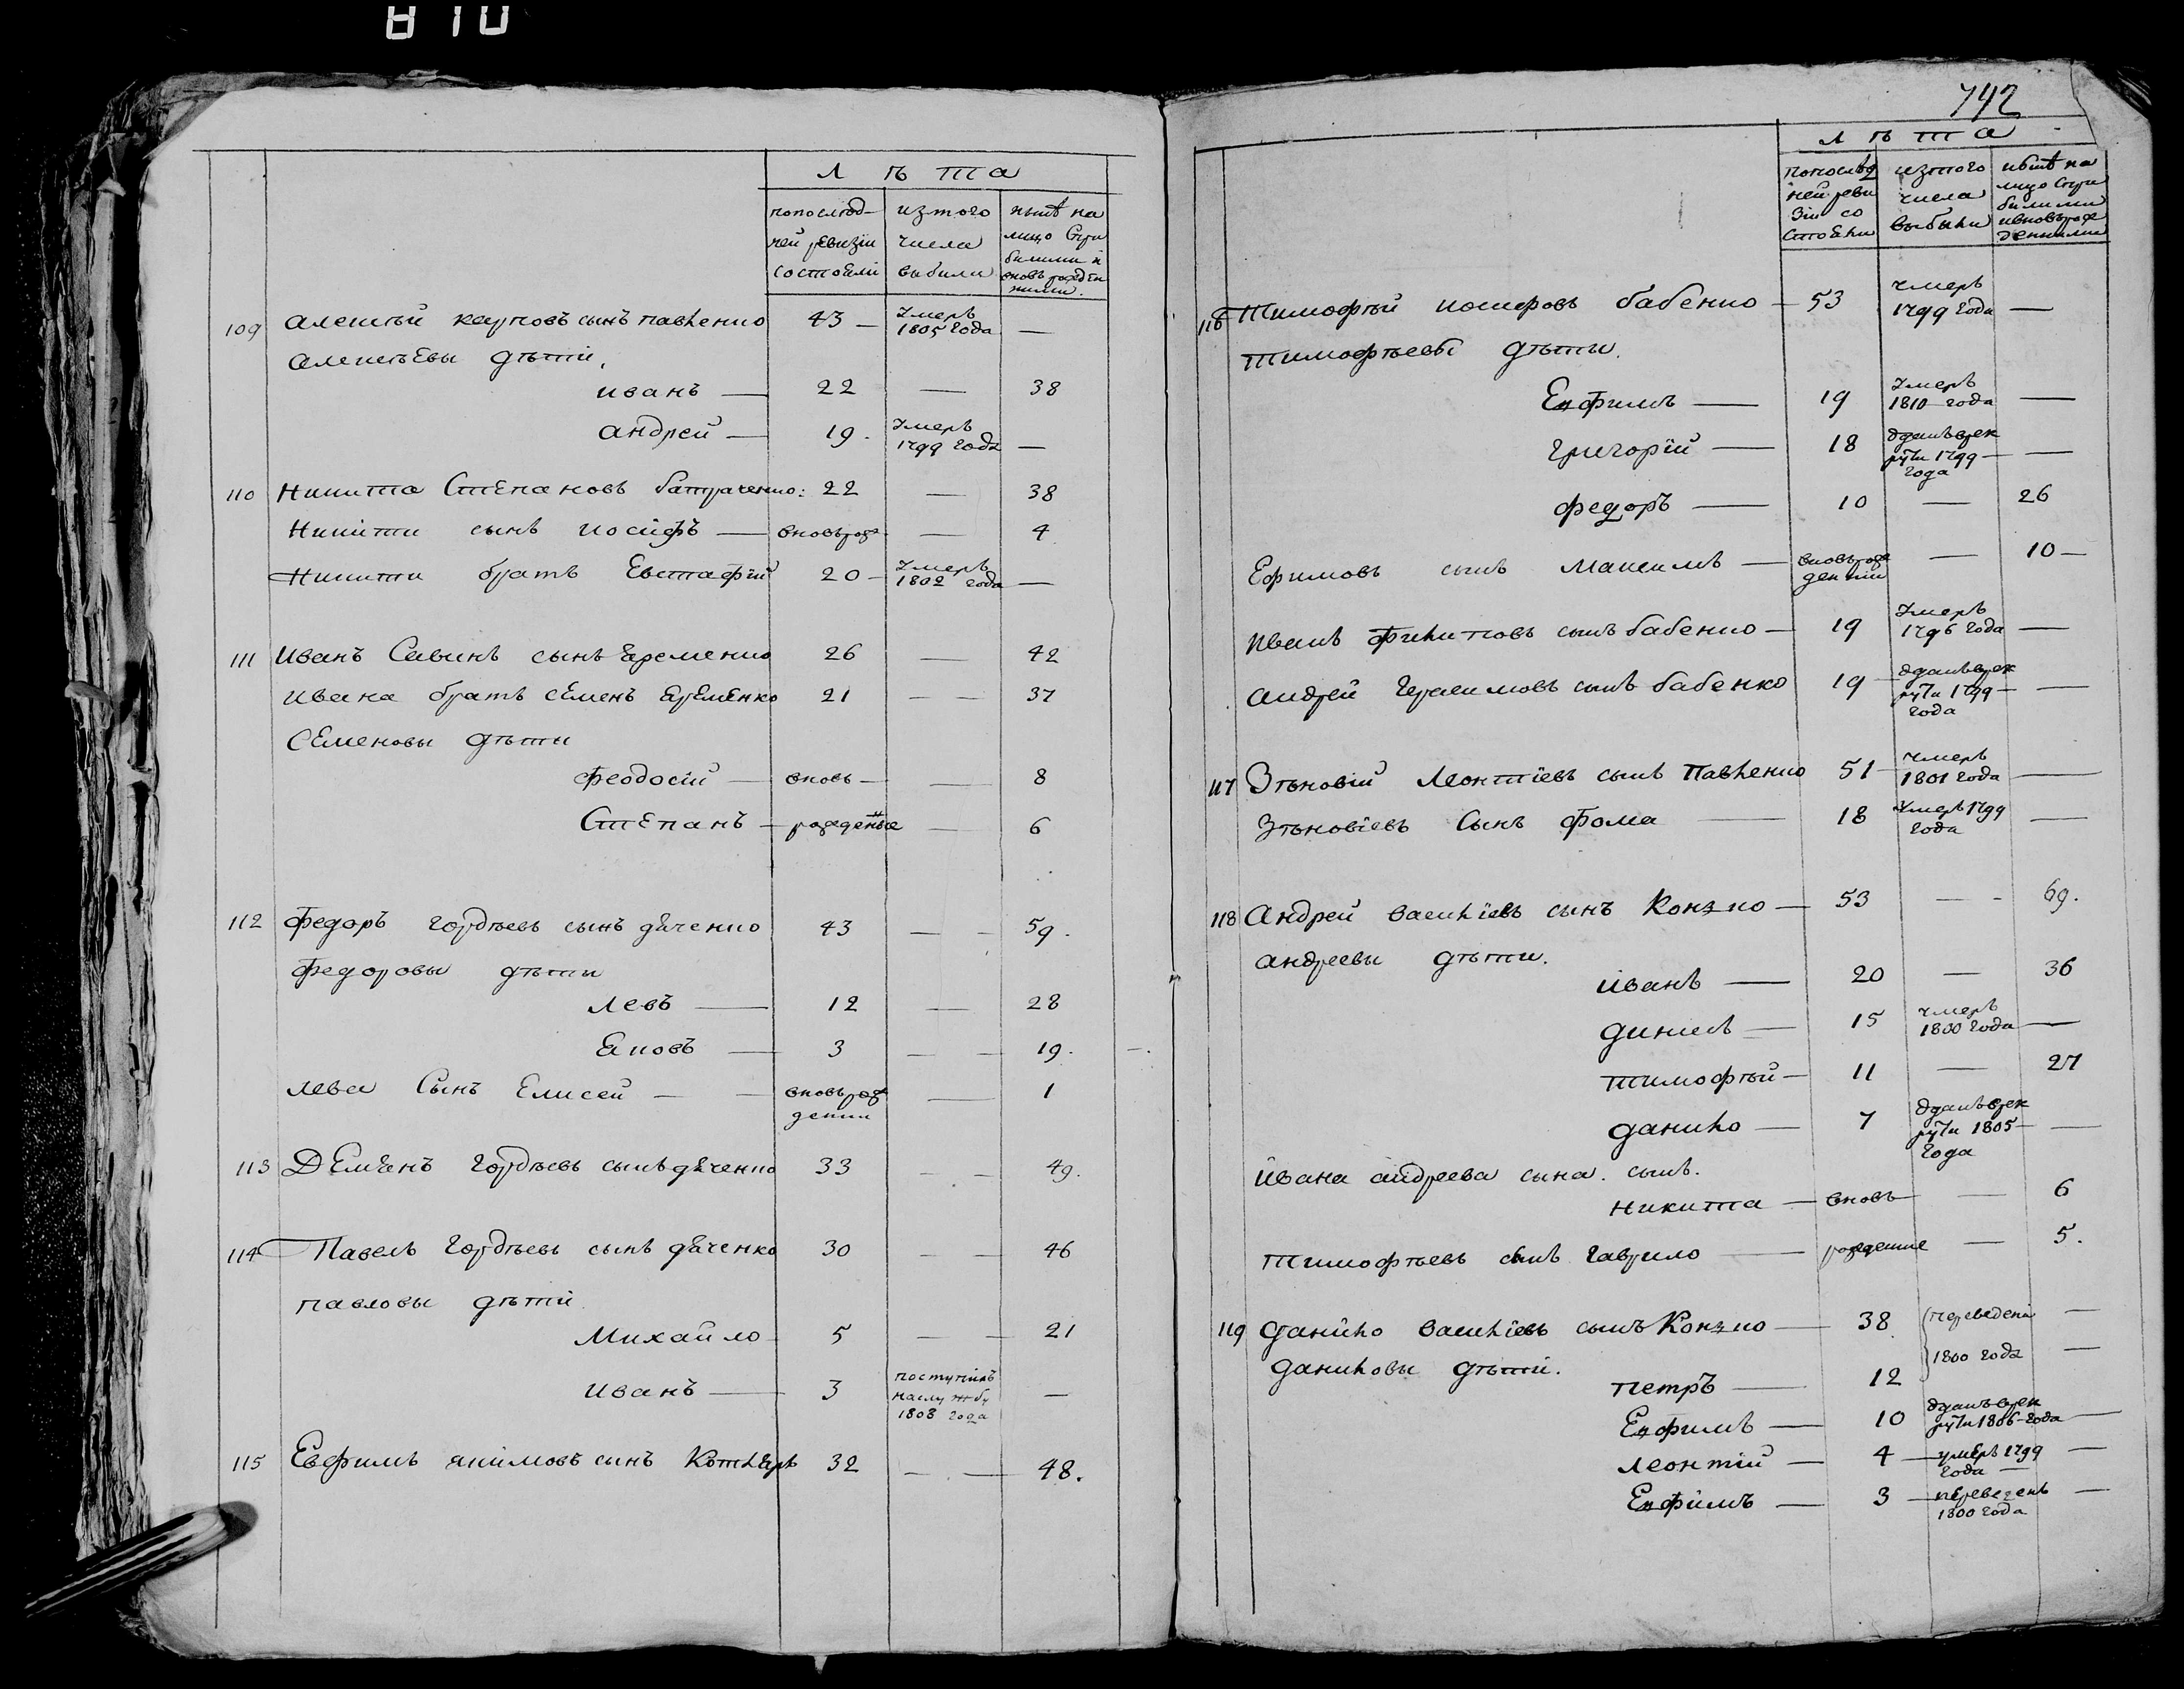 810
Лѣта
попослѣд-
ней ревизіи
состоели
изтого
числа
выбили
нынѣ на
лицо
билими и
вновь рожден
ними.
109 Алексѣй карповъ сынъ павленко 43 — Умеръ 1805 года —
Алексѣевы дѣти,
иванъ — 22 — 38
андрей — 19. Умеръ 1799 года —
110 Никита Степановъ батраченко: 22 — 38
Никиты сынъ иосифъ — вновь рож — 4
Никиты братъ Евстафий 20 — Умеръ 1802 года —
111 Иванъ Савинъ сынъ Еременко 26 — 42
Ивана братъ семенъ Еременко 21 — — 37
Семеновы дѣти
феодосий — вновь — — 8
Степанъ — рожденные — 6
112 федоръ гордѣевъ сынъ дяченко 43 — — 59.
федоровы дѣти
левъ — 12 — 28
Яковъ — 3 — — 19.
лева Сынъ Елисей — — вновь рож дении — 1
113 Демьянъ гордѣевъ сынъ дяченко 33 — — 49.
114 Павелъ гордѣевъ сынъ дяченко 30 — — 46
павловы дѣти
Михайло 5 — — 21
иванъ — 3 поступилъ наслужбу 1808 года —
115 Евфимъ якимовъ сынъ Котляръ 32 — — 48.
742
Лѣта
попослѣд
ней реви
зіи со
стоели
изтого
числа
выбыли
нынѣ на
лицо
билими
ивновь рож
денними
116 Тимофѣй иосифовъ бабенко — 53 умеръ 1799 года —
тимофѣевы дѣты.
Ефимъ — 19 Умеръ 1810 года —
григорїй — 18 отданъ врек руты 1799 — года —
федоръ — 10 — 26
Ефимовъ сынъ Максимъ — вновь рож дении — 10 —
иванъ филиповъ сынъ бабенко — 19 Умеръ 1796 года —
андрей герасимовъ сынъ бабенко 19 — отданъ врек руты 1799 — года —
117 Зѣновий Леонтїевъ сынъ Павленко 51 — умеръ 1801 года —
Зѣновїевъ Сынъ Фома — 18 Умеръ 1799 года —
118 Андрей василїевъ сынъ — 53 — - 69.
андреевы дѣти.
иванъ — 20 — 36
— 15 умеръ 1800 года —
тимофѣй — 11 — 27
данило — 7 отданъ врек руты 1805 — года —
ивана андреева сына. сынъ.
никита — вновь — — 6
тимофѣевъ сынъ гаврило — рожденние — 5.
119 данило василїевъ сынъ — 38 переведены —
даниловы дѣти.
петръ — 12 1800 года —
Ефимъ — 10 отданъ врек руты 1806 — года —
леонтий — 4 — умеръ 1799 года — —
Ефимъ — 3 — переведенъ 1800 года —